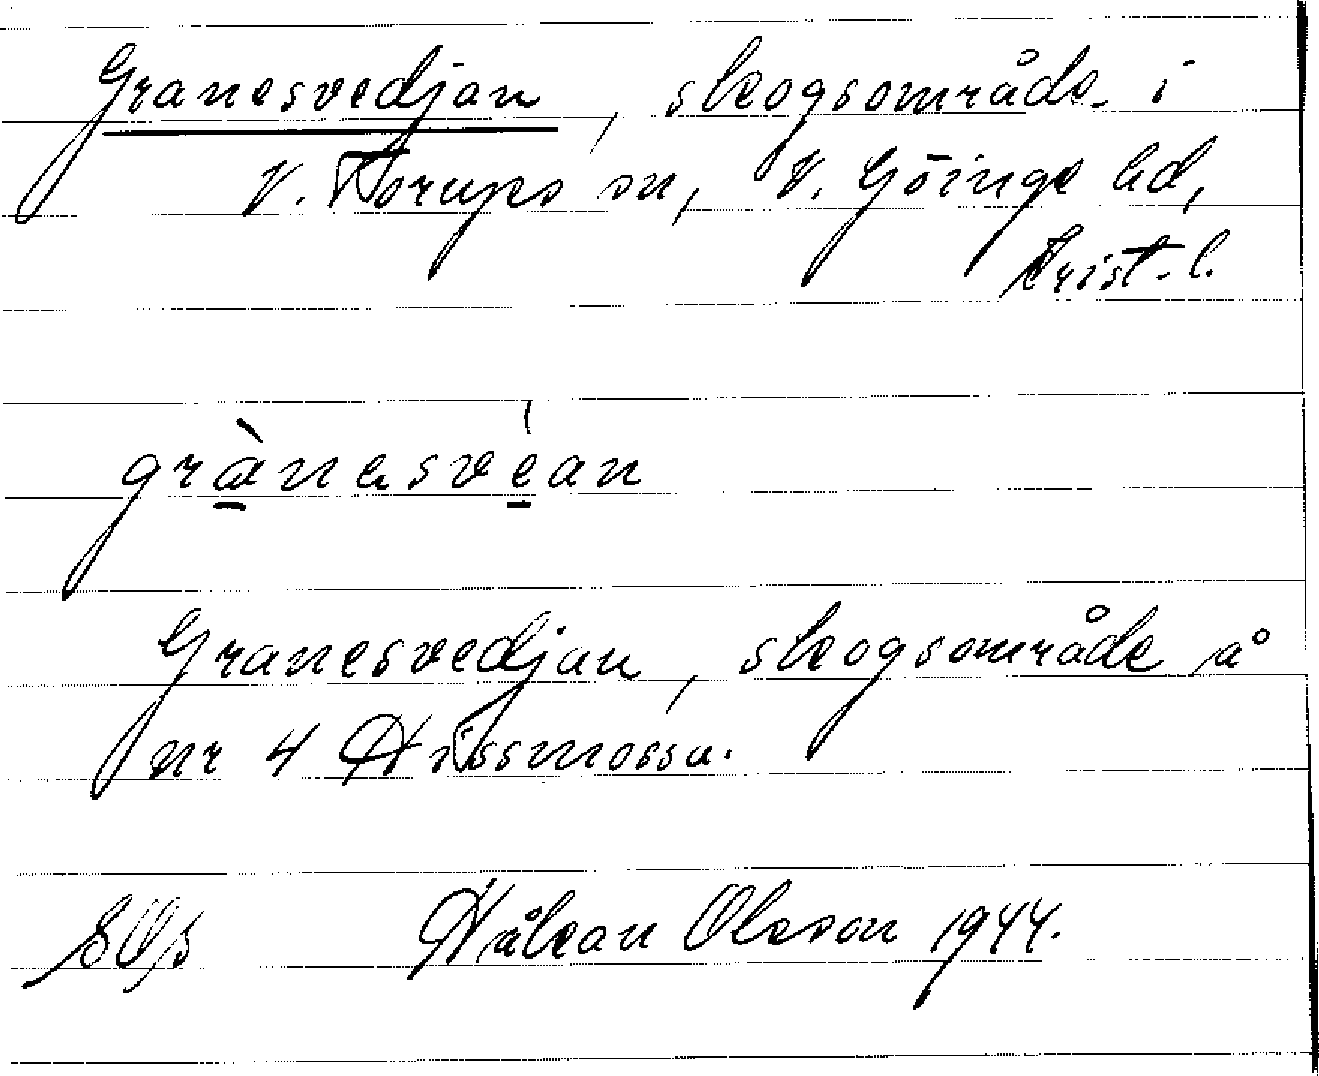 Granesvedjan, skogsområde i
V. Torups sn, V. Göinge hd,
Krist. l.
grànesvéan
Granesvedjan, skogsområde å
nr 4 Hissmossa.
Håkan Olsson 1944.